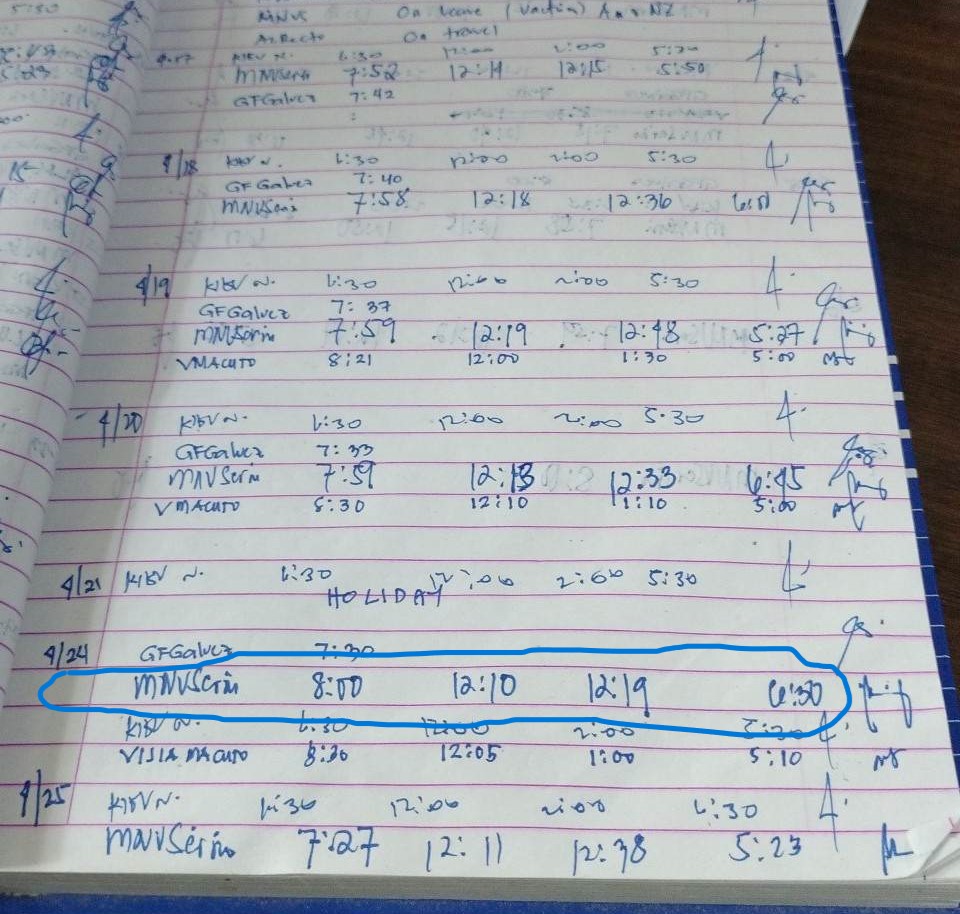 MNVS On leave (Vaction) Aus NZ
On travel
4-17 KIBV N. 6:30 12:00 2:00 5:30
MNVSerin 7:52 12:11 12:15 5:50
GFGalvez 7:42
4/18 KIBV N. 6:30 12:00 2:00 5:30
GFGalvez 7:40
MNVSerin 7:58 12:18 12:36
4/19 KIBV N. 6:30 12:00 2:00 5:30
GFGalvez 7:37
MNVSerin 7:59 12:19 12:48 5:27
VMACUTO 8:21 12:00 1:30 5:00
4/20 KIBV N. 6:30 12:00 2:00 5:30
GFGalvez 7:33
MNVSerin 7:59 12:13 12:33 6:45
VMACUTO 8:30 12:10 1:10 5:00
4/21 KIBV N. 6:30 12:00 2:00 5:30
HOLIDAY
4/24 GFGalvez 7:30
MNVSerin 8:00 12:10 12:19 6:30
KIBV N. 6:30 12:00 2:00 5:30
VIJIA MACUTO 8:30 12:05 1:00 5:10
4/25 KIBV N. 6:30 12:00 2:00 6:30
MNVSerin 7:27 12:11 12:38 5:23